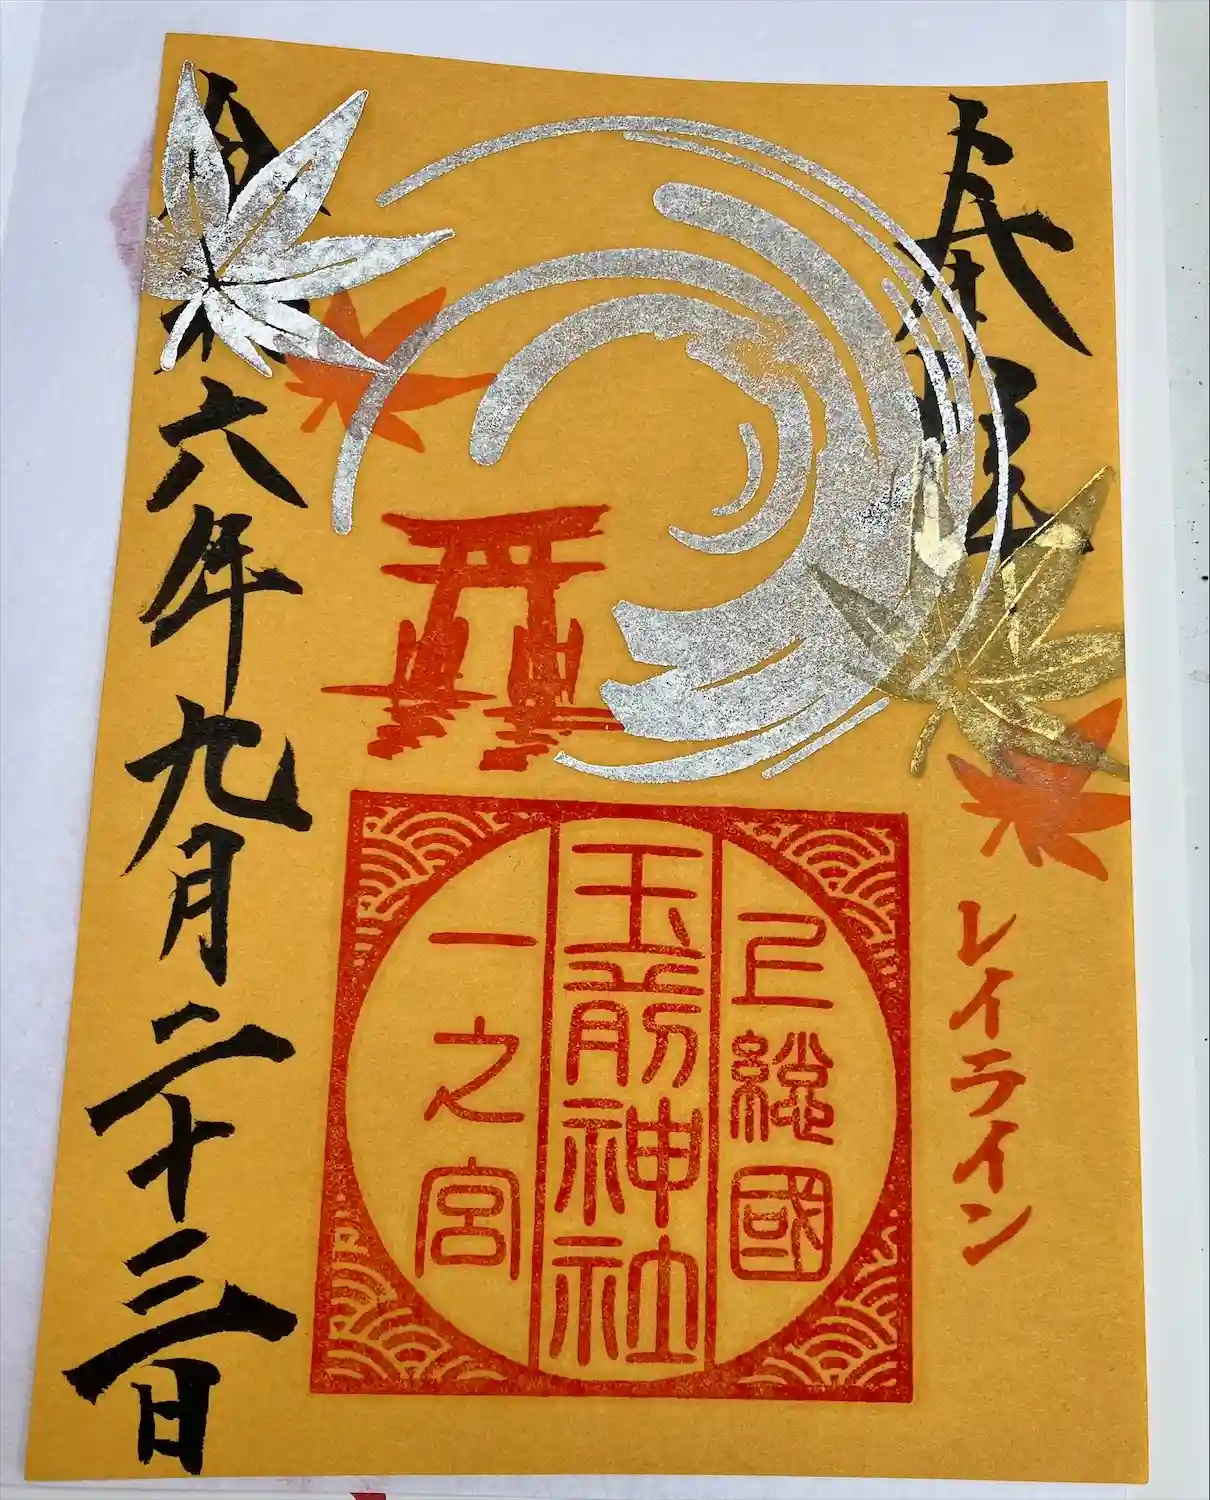 レイライン
上総國
玉前神社
一之宮
六年九月二十三日